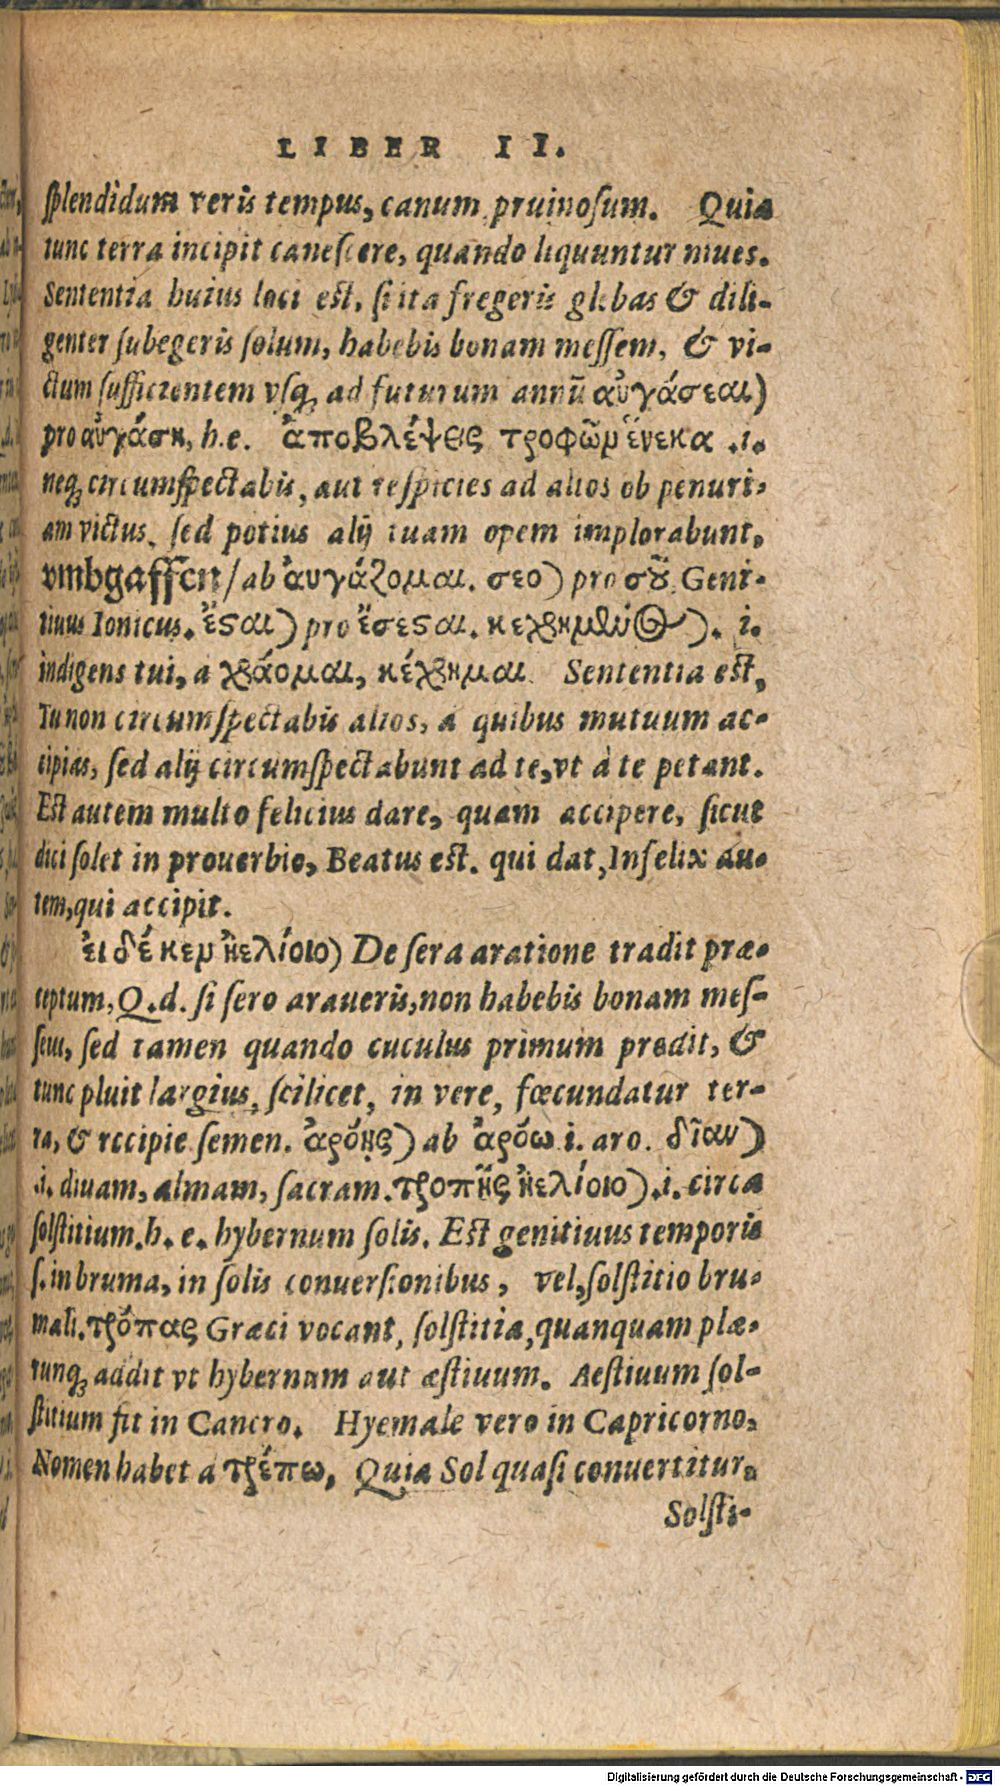 LIBER II.
splendidum veris tempus, canum pruinosum. Quia
tunc terra incipit canescere, quando liquuntur niues.
Sententia huius loci est, si ita fregeris glebas & dili-
genter subegeris solum, habebis bonam messem, & vi-
ctum sufficientem vsq; ad futurum annū αὐγάσεαι)
pro αὐγάσῃ, h.e. ἀποβλέψεις τροφῶν ἕνεκα .i.
neq; circumspectabis, aut respicies ad alios ob penuri-
am victus, sed potius alij tuam opem implorabunt,
vmbgaffen/ ab ἀυγάζομαι. σεο) pro σοῦ. Geni-
tiuus Ionicus. ἔσαι) pro ἔσεσαι. κεχρημένος). i.
indigens tui, a χράομαι, κέχρημαι. Sententia est,
Tu non circumspectabis alios, a quibus mutuum ac-
cipias, sed alij circumspectabunt ad te, vt à te petant.
Est autem multo felicius dare, quam accipere, sicut
dici solet in prouerbio, Beatus est. qui dat, Infelix au-
tem, qui accipit.
ἐι δέ κεν ἠελίοιο) De sera aratione tradit præ-
ceptum, Q.d. si sero araueris, non habebis bonam mes-
sem, sed tamen quando cuculus primum prodit, &
tunc pluit largius, scilicet, in vere, fœcundatur ter-
ra, & recipit semen. ἀρόῃς) ab ἀρόω i. aro. δῖαν)
.i. diuam, almam, sacram. τροπῇς ἠελίοιο) .i. circa
solstitium. h. e. hybernum solis. Est genitiuus temporis
s. in bruma, in solis conuersionibus, vel, solstitio bru-
mali. τρόπας Græci vocant, solstitia, quanquam plæ-
runq; addit vt hybernum aut æstiuum. Aestiuum sol-
stitium fit in Cancro. Hyemale vero in Capricorno.
Nomen habet a τρέπω, Quia Sol quasi conuertitur.
Solsti-
Digitalisierung gefördert durch die Deutsche Forschungsgemeinschaft - DFG